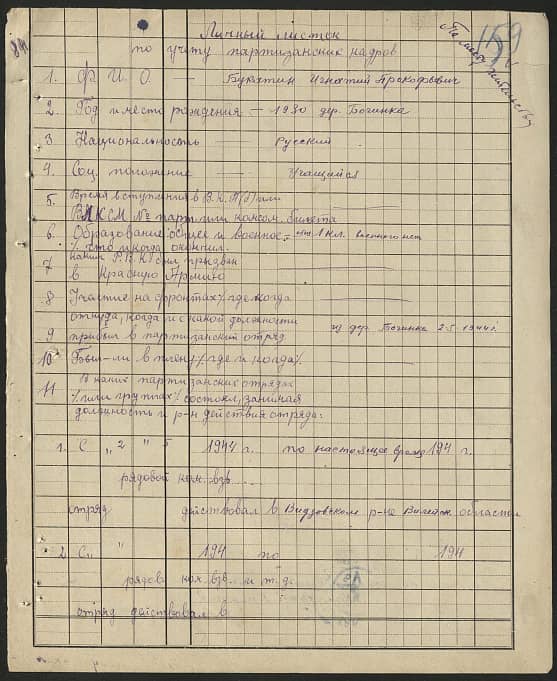 84
159
Личный листок
По месту жительства
по учету партизанских кадров
1. Ф И О — Букатин Игнатий Прокофьевич
2. Год и место рождения — 1930 дер. Богинка
3 Национальность — Русский
4. Соц. положение — Учащийся
5. Время вступления в В.К.П(б) или
ВЛКСМ № парт. или комсом. билета
6 Образование общее и военное,
что и когда окончил.
7 каким Р.В.К. был призван
в Красную Армию
8 Участие на фронтах где когда
откуда, когда и с какой должности
9 прибыл в партизанский отряд из дер. Богинка 2-5 1944 г.
10 Был-ли в плену где и когда
11 В каких партизанских отрядах
или группах состоял, занимая
должность и р-н действия отряда:
1. С „2" 5 1944 г. по настоящее время 194 г.
рядовой ком. взв...
отряд действовал в Видзовском р-не Вилейск. области
2 С „ " 194 по 194
рядово ком. взв... и т.д.
отряд действовал в